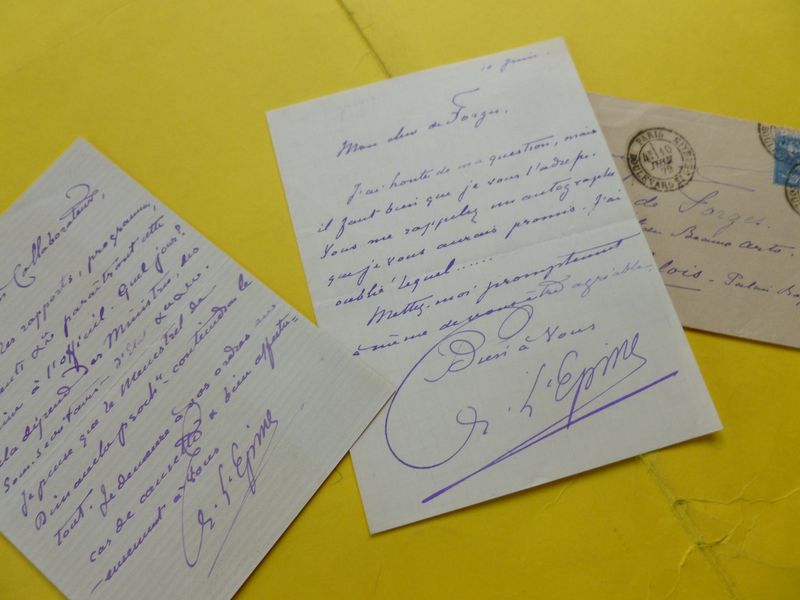 Collaborateur,
rapports, programme,
paraîtront cette
à l'officiel. Quel jour?
dépend des Ministres, des
Sous-secrétaires d'État Ludre.
Je pense que le Menestrel de
Dimanche proch. contiendra le
tout. Je demeure à vos ordres au
cas de & bien affectu-
-eusement à vous
E. L'Epine
10 Juin.
Mon cher de Forges,
J'ai honte de ma question, mais
il faut bien que je vous l'adresse.
Vous me rappelez un autographe
que je vous aurais promis. J'ai
oublié lequel......
Mettez-moi promptement
à même de vous être agréable,
Bien à vous
E. L'Epine
PARIS
10
JUIN
de Forges.
Beaux Arts.
Palais